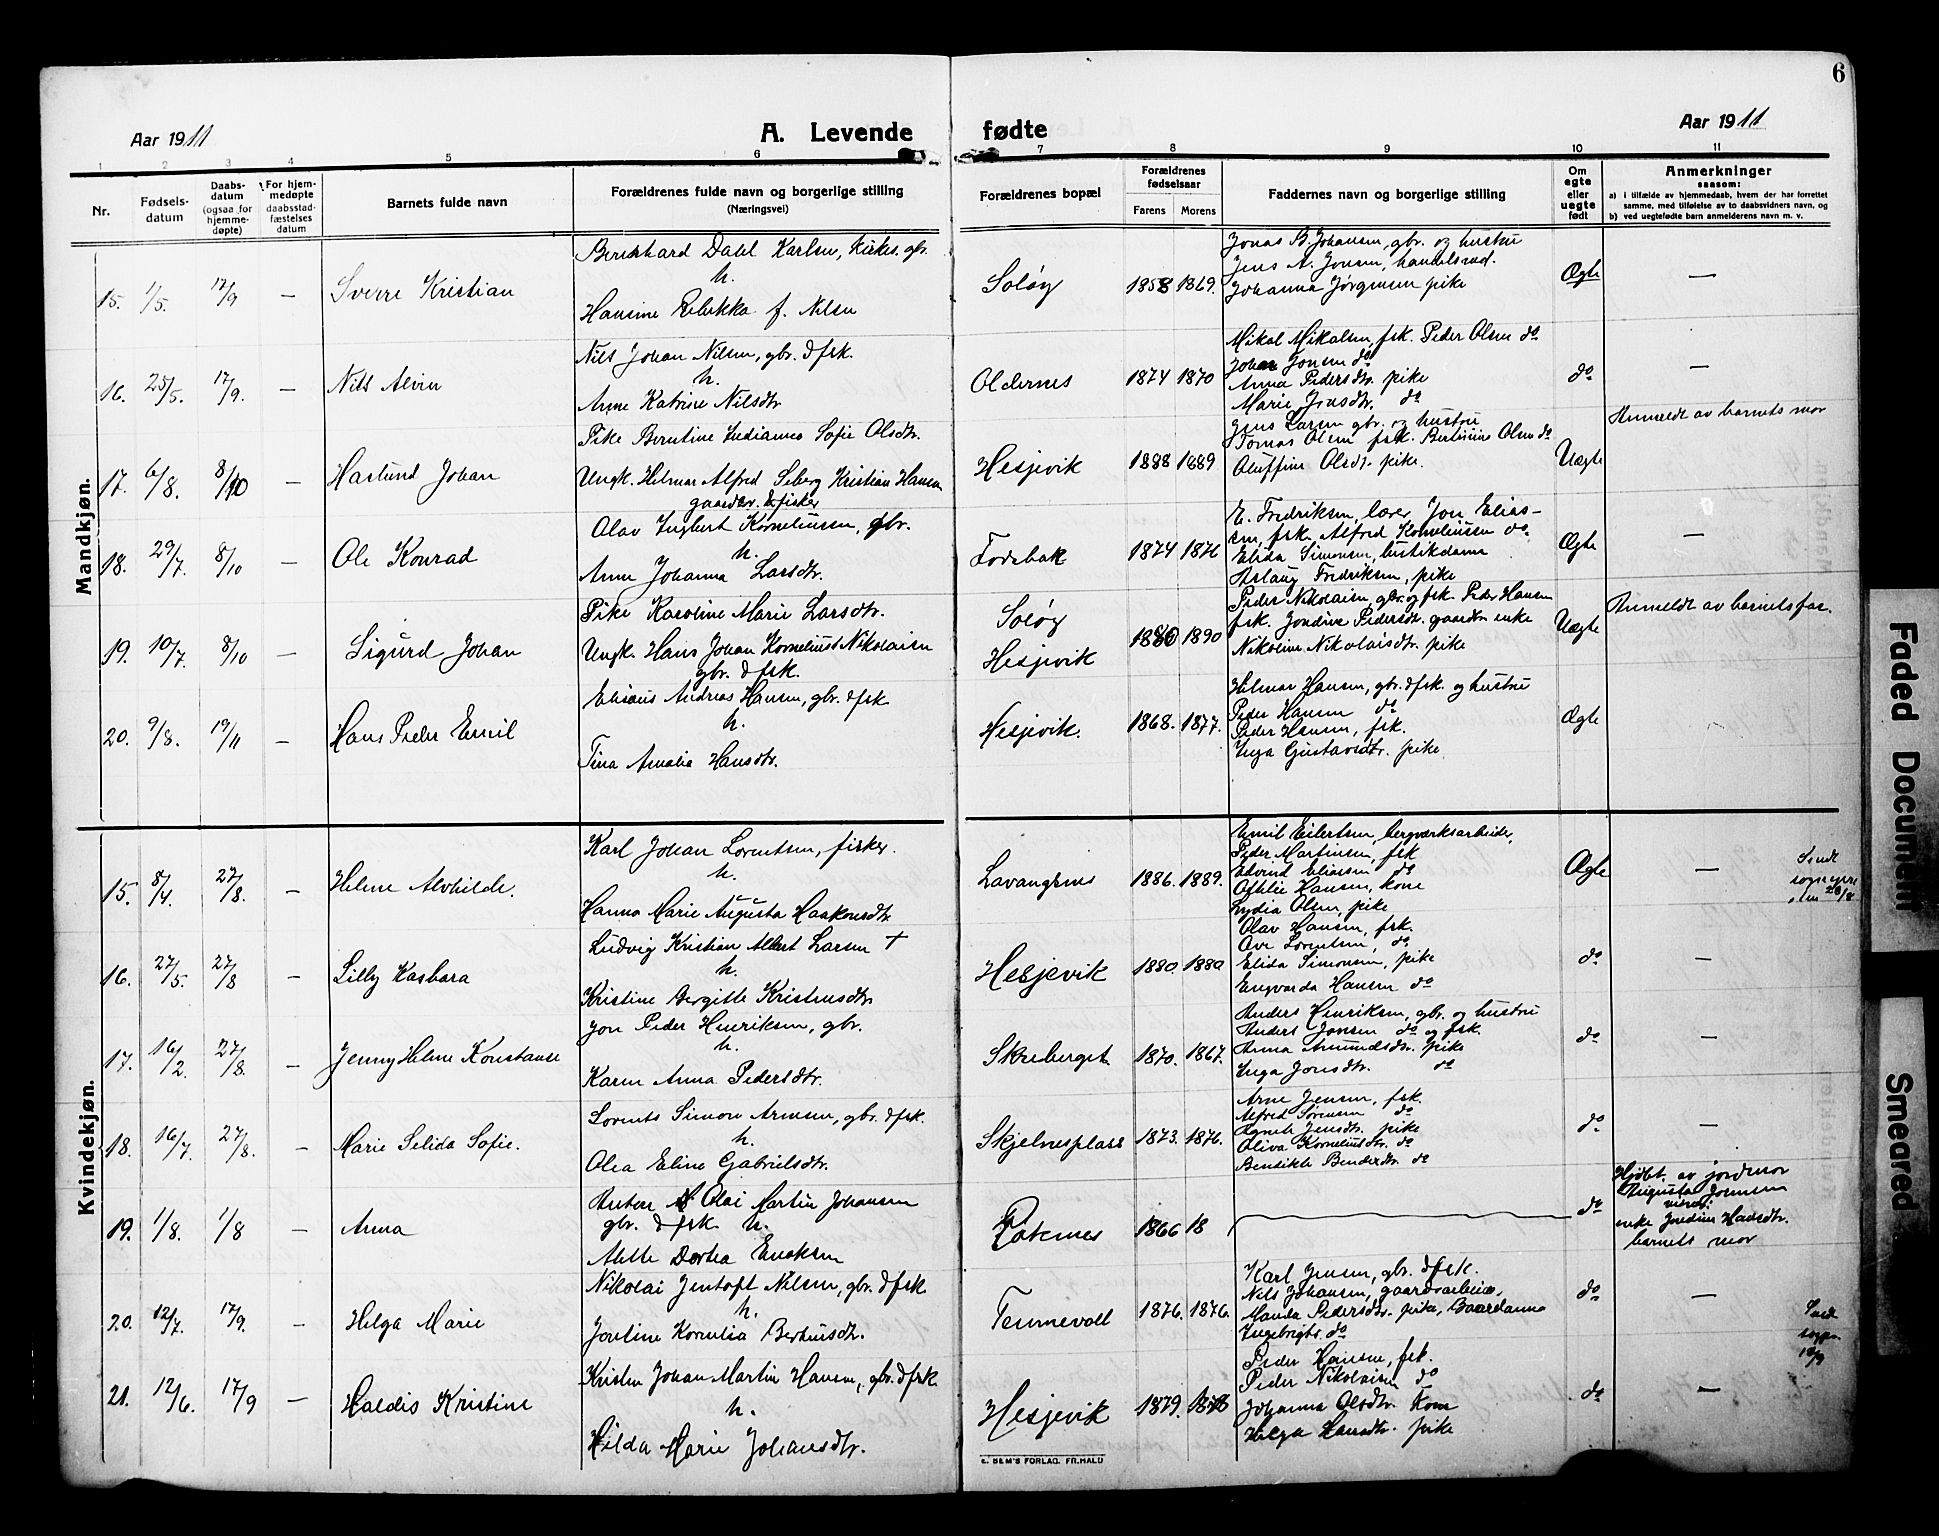 6
Aar 1911
A. Levende fødte
Aar 1911
1 2 3 4 5 6 7 8 9 10 11
Nr.
Fødsels-
datum
Daabs-
datum
(ogsaa for
hjemme-
døpte)
For hjem-
medøpte
daabsstad-
fæstelses
datum
Barnets fulde navn
Forældrenes fulde navn og borgerlige stilling
(Næringsvei)
Forældrenes bopæl
Forældrenes
fødselsaar
Farens Morens
Faddernes navn og borgerlige stilling
Om
egte
eller
uegte
født
Anmerkninger
saasom:
a) i tilfælde av hjemmedaab, hvem der har forrettet
samme, med tilføielse av to daabsvidners navn, og
b) ved uegtefødte barn anmelderens navn m. v.
Mandkjøn.
15. 1/5 17/9 — Sverre Kristian
Bernhard Dahl Karlsen, kirkes. gbr.
h.
Hansine Rebekka f. Nilsen
Soløy 1858 1869.
Jonas B. Johansen, gbr. og hustru
Jens A. Jonsen, handelsmd.
Johanna Jørgensen pike
Ægte —
16. 25/5. 17/9. — Nils Alvin
Nils Johan Nilsen, gbr. & fsk.
h.
Anne Katrine Nilsdtr
Oldernes 1874 1870
Mikal Mikalsen, fsk. Peder Olsen do
Johan Jonsen do
Anna Pedersdtr. pike
Marie Jensdtr. do
do —
17. 6/8. 8/10 — Harlund Johan
Pike Berntine Indianna Sofie Olsdtr.
Ungk. Hilmar Alfred Seberg Kristian Hansen
gaardbr. & fisker
Hesjevik 1888 1889
Jens Larsen gbr. og hustru
Tomas Olsen fsk. Bertine Olsen do
Oluffine Olsdtr. pike.
Uægte
Anmeldt av barnets mor
18. 29/7. 8/10 — Ole Konrad
Olav Ingbert Korneliussen, gbr.
h.
Anne Johanna Larsdtr.
Forsbak 1874 1876
E. Fredriksen, lærer, Jon Elias-
sen, fsk. Alfred Korneliussen do.
Elida Simonsen, butikdame
Aslaug Fredriksen, pike
Ægte —
19. 10/7. 8/10 — Sigurd Johan
Pike Karoline Marie Larsdtr.
Ungk. Hans Johan Kornelius Nikolaisen
gbr. & fsk.
Soløy
Hesjevik
1886 1890
Peder Nikolaisen gbr. og fsk. Peder Hansen
fsk. Jordine Pedersdtr. gaardm enke
Nikoline Nikolaisdtr. pike
Uægte
Anmeldt av barnets far.
20. 9/8. 19/11 — Hans Peder Emil
Elisæus Andreas Hansen, gbr. & fsk
h.
Tina Amalia Hansdtr.
Hesjevik. 1868. 1877.
Hilmar Hansen, gbr. & fsk. og hustru
Peder Hansen do
Peder Hansen, fsk.
Inga Gustavsdtr. pike
Ægte
Kvindekjøn.
15. 8/4. 27/8. — Helene Alvhilde.
Karl Johan Lorentsen, fisker.
h.
Hanna Marie Augusta Haakonsdtr
Lavangsnes 1886. 1889.
Emil Eilertsen, bergverksarbeider,
Peder Martinsen, fsk
Edvind Eliassen do
Othilie Hansen, kone
Lydia Olsen, pike
Ægte —
Sendt
sognepre
sten 28/8
16. 27/5. 27/8 — Lilly Kasbara
Ludvig Kristian Albert Larsen +
h.
Kristine Bergitte Kristensdtr
Hesjevik 1880. 1880
Olav Hansen, fsk.
Ove Lorentsen, do
Elida Simonsen, pike
Engvarda Hansen do
do —
17. 16/2. 27/8. — Jenny Helene Konstanse
Jon Peder Henriksen, gbr.
h.
Karen Anna Pedersdtr.
Skreberget 1870. 1867.
Anders Henriksen, gbr. og hustru
Anders Jonsen do og fsk.
Anna Amundsdtr. pike
Inga Jonsdtr. do
do —
18. 16/7. 27/8. — Marie Selida Sofie.
Lorents Simon Arnesen, gbr. & fsk.
h.
Olea Eline Gabrielsdtr.
Skjelnesplass 1873. 1876.
Arne Jensen, fsk.
Alfred Sørensen do
Agnete Jensdtr. pike
Oliva Korneliusdtr. do
Bendikte Bendersdtr. do
do —
19. 1/8. 1/8 Anna
Anton Olai Martin Johansen
gbr. & fsk h.
Alette Dorthea Enoksen
Røternes 1866 18
do
Hjdøbt. av jordmor
Augusta Jonmsen
enke Jordine Hansdtr.
barnets mor
20. 12/7. 17/9. — Helga Marie
Nikolai Jentoft Nilsen, gbr. & fsk
h.
Jentine Kornelia Berthusdtr.
Tennevoll 1876. 1876.
Karl Jensen, gbr. & fsk.
Nils Johansen, gaardsarbeider,
Manda Pedersdtr. pike, Baardanna
Ingebrigts. do
do —
21. 12/6. 17/9 — Haldis Kristine
Kristen Johan Martin Hansen, gbr. & fsk
h.
Hilda Marie Johansdtr.
Hesjevik 1879. 1878
Peder Hansen, fsk.
Peder Nikolaisen do
Johanna Olsdtr. kone
Helga Hansdtr. pike
do —
Sendt
sogn.
E. SEM'S FORLAG. FR.HALD
Faded Document
Smeared